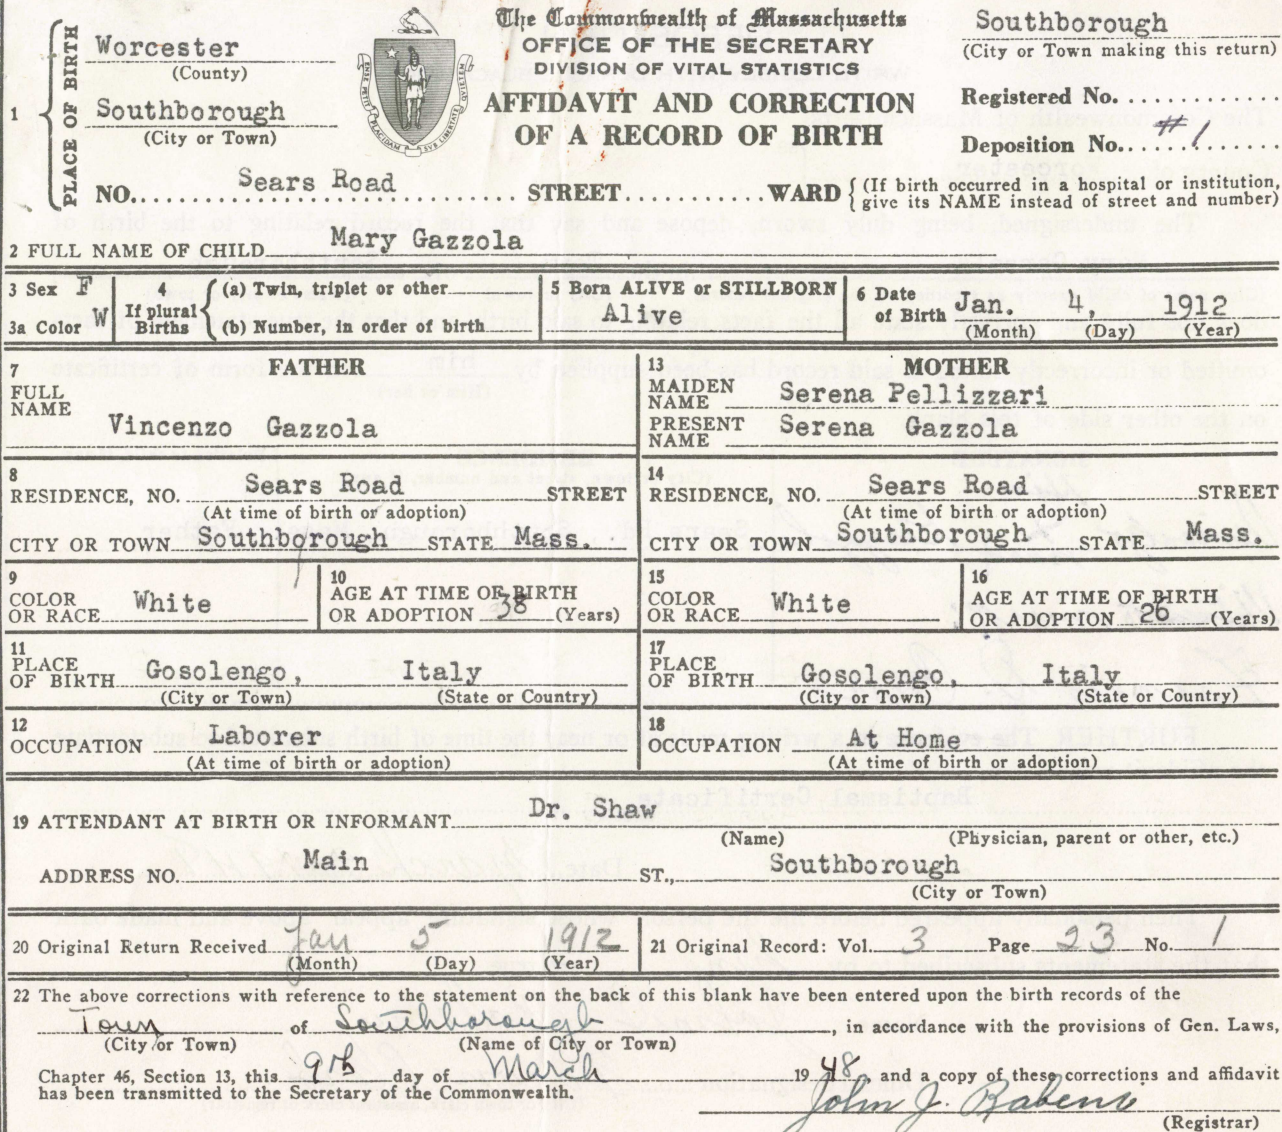 The Commonwealth of Massachusetts
OFFICE OF THE SECRETARY
DIVISION OF VITAL STATISTICS
AFFIDAVIT AND CORRECTION
OF A RECORD OF BIRTH
1 PLACE OF BIRTH
Worcester
(County)
Southborough
(City or Town)
ENSE PETIT PLACIDAM SUB LIBERTATE
Southborough
(City or Town making this return)
Registered No.
Deposition No. #1
NO. Sears Road STREET WARD (If birth occurred in a hospital or institution, give its NAME instead of street and number)
2 FULL NAME OF CHILD Mary Gazzola
3 Sex F
3a Color W
4 If plural Births
(a) Twin, triplet or other
(b) Number, in order of birth
5 Born ALIVE or STILLBORN
Alive
6 Date of Birth Jan. 4, 1912
(Month) (Day) (Year)
FATHER
7 FULL NAME
Vincenzo Gazzola
8 RESIDENCE, NO. Sears Road STREET
(At time of birth or adoption)
CITY OR TOWN Southborough STATE Mass.
9 COLOR OR RACE White
10 AGE AT TIME OF BIRTH OR ADOPTION 38 (Years)
11 PLACE OF BIRTH Gosolengo, Italy
(City or Town) (State or Country)
12 OCCUPATION Laborer
(At time of birth or adoption)
MOTHER
13 MAIDEN NAME Serena Pellizzari
PRESENT NAME Serena Gazzola
14 RESIDENCE, NO. Sears Road STREET
(At time of birth or adoption)
CITY OR TOWN Southborough STATE Mass.
15 COLOR OR RACE White
16 AGE AT TIME OF BIRTH OR ADOPTION 26 (Years)
17 PLACE OF BIRTH Gosolengo, Italy
(City or Town) (State or Country)
18 OCCUPATION At Home
(At time of birth or adoption)
19 ATTENDANT AT BIRTH OR INFORMANT Dr. Shaw
(Name) (Physician, parent or other, etc.)
ADDRESS NO. Main ST., Southborough
(City or Town)
20 Original Return Received Jan 5 1912
(Month) (Day) (Year)
21 Original Record: Vol. 3 Page 23 No. 1
22 The above corrections with reference to the statement on the back of this blank have been entered upon the birth records of the
Town of Southborough, in accordance with the provisions of Gen. Laws,
(City or Town) (Name of City or Town)
Chapter 46, Section 13, this 9th day of March 1948 and a copy of these corrections and affidavit
has been transmitted to the Secretary of the Commonwealth.
John J.
(Registrar)